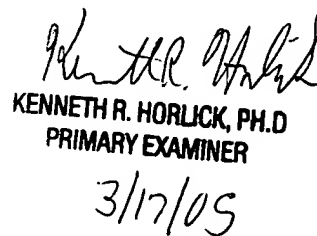 Kenneth R. Horlick
KENNETH R. HORLICK, PH.D
PRIMARY EXAMINER
3/17/05